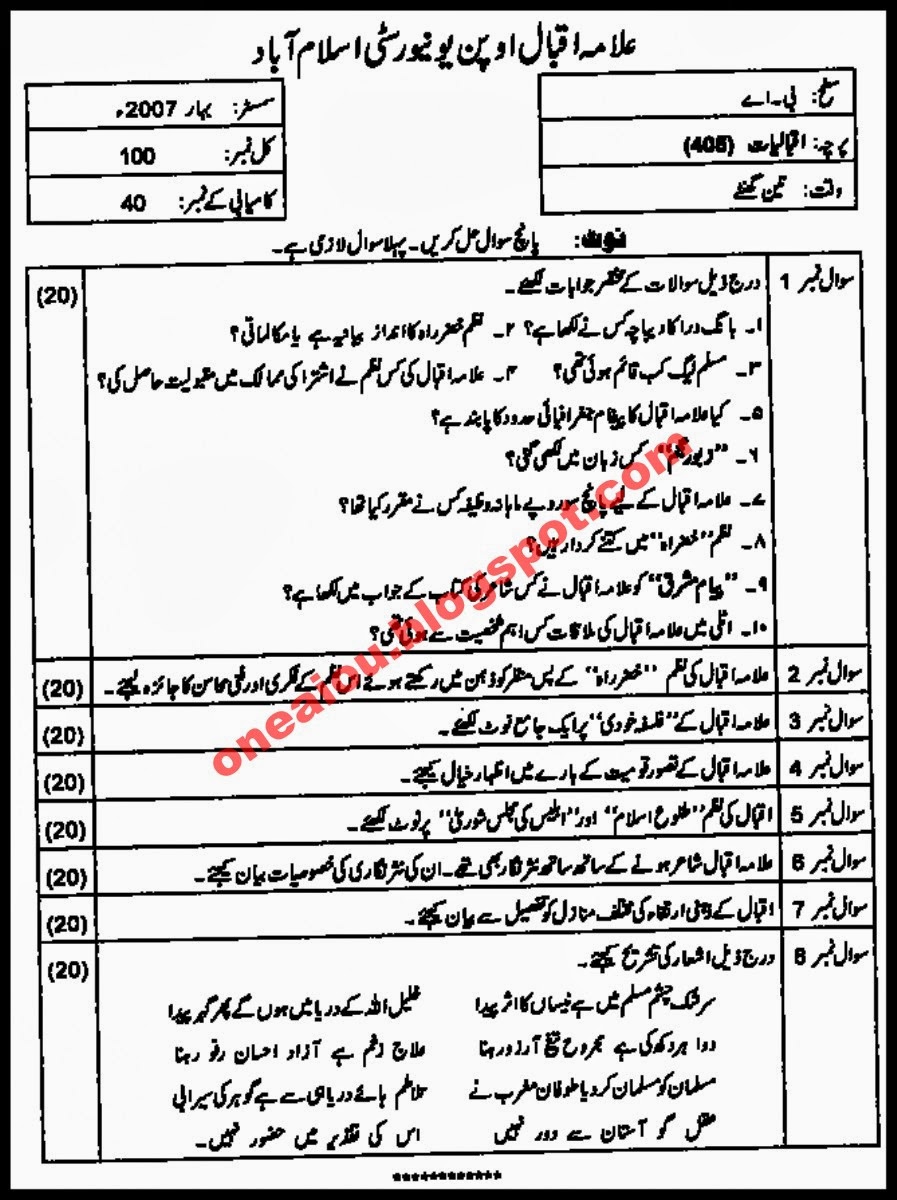 علامہ اقبال اوپن یونیورسٹی اسلام آباد
سطح: بی۔اے
پرچہ: اقبالیات (405)
وقت: تین گھنٹے
سمسٹر: بہار 2007ء
کل نمبر: 100
کامیابی کے نمبر: 40
نوٹ: پانچ سوال حل کریں۔ پہلا سوال لازمی ہے۔
سوال نمبر 1 درج ذیل سوالات کے مختصر جوابات لکھئے۔ (20)
۱۔ بانگ درا کا دیباچہ کس نے لکھا ہے؟ ۲۔ نظم خضر راہ کا انداز بیانیہ ہے یا مکالماتی؟
۳۔ مسلم لیگ کب قائم ہوئی تھی؟ ۴۔ علامہ اقبال کی کس نظم نے اشتراکی ممالک میں مقبولیت حاصل کی؟
۵۔ کیا علامہ اقبال کا پیغام جغرافیائی حدود کا پابند ہے؟
۶۔ "زبور عجم" کس زبان میں لکھی گئی؟
۷۔ علامہ اقبال کے لیے پانچ سو روپے ماہانہ وظیفہ کس نے مقرر کیا تھا؟
۸۔ نظم "خضر راہ" میں کتنے کردار ہیں؟
۹۔ "پیام مشرق" کو علامہ اقبال نے کس شاعر کی کتاب کے جواب میں لکھا ہے؟
۱۰۔ اٹلی میں علامہ اقبال کی ملاقات کس اہم شخصیت سے ہوئی تھی؟
سوال نمبر 2 علامہ اقبال کی نظم "خضر راہ" کے پس منظر کو ذہن میں رکھتے ہوئے اس نظم کے فکری اور فنی محاسن کا جائزہ لیجئے۔ (20)
سوال نمبر 3 علامہ اقبال کے "فلسفہ خودی" پر ایک جامع نوٹ لکھئے۔ (20)
سوال نمبر 4 علامہ اقبال کے تصور قومیت کے بارے میں اظہار خیال کیجئے۔ (20)
سوال نمبر 5 اقبال کی نظم "طلوع اسلام" اور "ابلیس کی مجلس شوریٰ" پر نوٹ لکھئے۔ (20)
سوال نمبر 6 علامہ اقبال شاعر ہونے کے ساتھ ساتھ نثر نگار بھی تھے۔ ان کی نثر نگاری کی خصوصیات بیان کیجئے۔ (20)
سوال نمبر 7 اقبال کے ذہنی ارتقاء کی مختلف منازل کو تفصیل سے بیان کیجئے۔ (20)
سوال نمبر 8 درج ذیل اشعار کی تشریح کیجئے۔ (20)
سرشک چشم مسلم میں ہے نیساں کا اثر پیدا خلیل اللہ کے دریا میں ہوں گے پھر گہر پیدا
دوا ہر دکھ کی ہے مجروح تیغ آرزو رہنا علاج زخم ہے آزاد احسان رفو رہنا
مسلماں کو مسلماں کر دیا طوفان مغرب نے تلاطم ہائے دریا ہی سے ہے گوہر کی سیرابی
عقل گو آستاں سے دور نہیں اس کی تقدیر میں حضور نہیں۔
************
oneaiou.blogspot.com